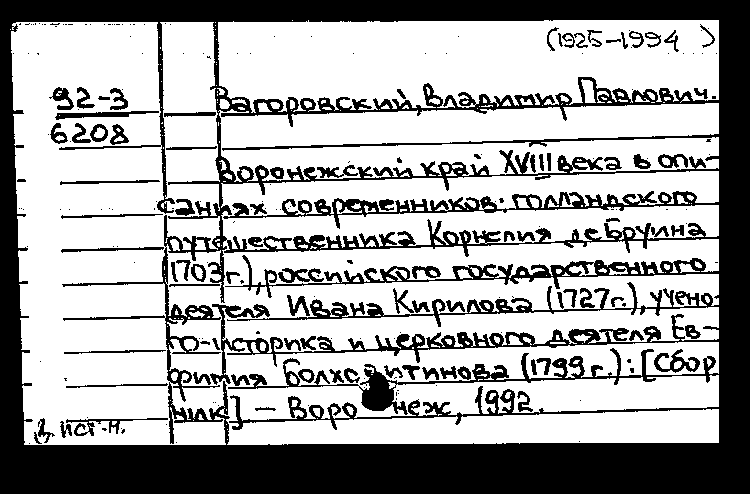 (1925-1994)
92-3
6208
Загоровский, Владимир Павлович.
Воронежский край XVIII века в опи-
саниях современников: голландского
путешественника Корнелия де Бруина
(1703г.), российского государственного
деятеля Ивана Кирилова (1727г.), учено-
го-историка и церковного деятеля Ев-
фимия Болховитинова (1799 г.): [Сбор
ник] - Воронеж, 1992.